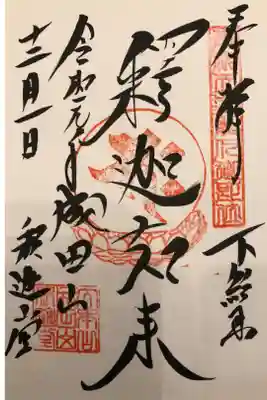 奉拝
下総国
釋迦如来
令和元年成田山
十二月一日
釈迦堂